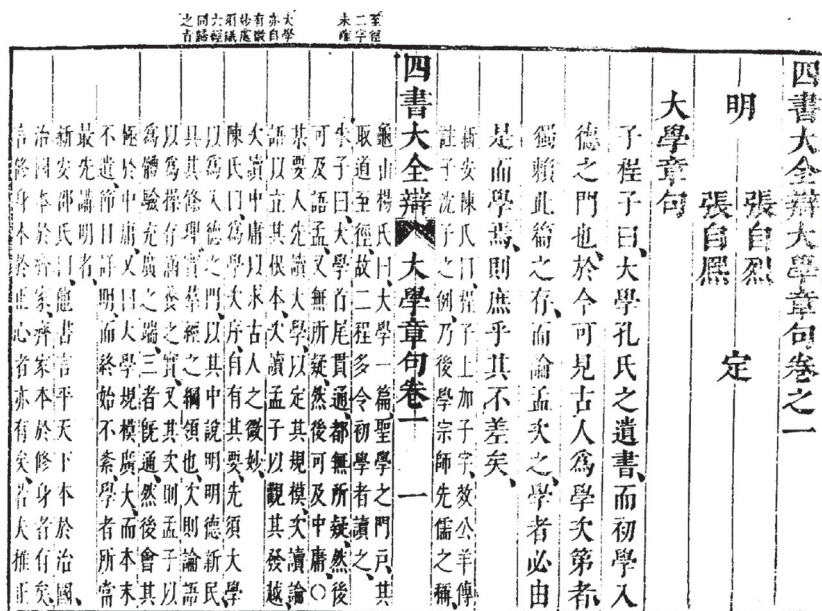 四書大全辯大學章句卷之一
明
張自烈
張自熈
定
大學章句
子程子曰、大學孔氏之遺書、而初學入
德之門也、於今可見古人爲學次第者、
獨賴此篇之存、而論孟次之、學者必由
是而學焉、則庶乎其不差矣、
新安陳氏曰、程子上加子字、效公羊傳
註子沈子之例、乃後學宗師先儒之稱、
四書大全辯 大學章句卷一 一
至徑
二字
未確
龜山楊氏曰、大學一篇、聖學之門戸、其
取道至徑、故二程多令初學者讀之、
朱子曰、大學首尾貫通、都無所疑、然後
可及語孟、又無所疑、然後可及中庸、○
某要人先讀大學、以定其規模、次讀論
語、以立其根本、次讀孟子、以觀其發越、
次讀中庸、以求古人之微妙、
大學
亦自
有微
妙處
須識
六經
同歸
之旨
陳氏曰、爲學次序、自有其要、先須大學
以爲入德之門、以其中說明明德新民、
具其條理、實羣經之綱領也、次則論語
以爲操存涵養之實、又其次則孟子以
爲體驗充廣之端、三者旣通、然後會其
極於中庸、又曰、大學規模廣大、而本末
不遺、節目詳明、而終始不紊、學者所當
最先講明者、
新安邵氏曰、他書言平天下本於治國、
治國本於齊家、齊家本於修身者有矣、
言修身本於正心者亦有矣、若夫推正